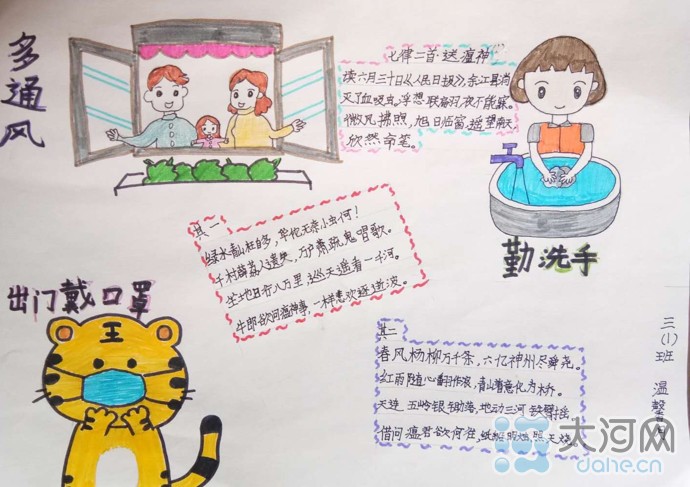 多通风
七律二首·送瘟神
读六月三十日《人民日报》,余江县消
灭了血吸虫。浮想联翩,夜不能寐。
微风拂煦,旭日临窗,遥望南天,
欣然命笔。
勤洗手
其一
绿水青山枉自多,华佗无奈小虫何!
千村薜荔人遗矢,万户萧疏鬼唱歌。
坐地日行八万里,巡天遥看一千河。
牛郎欲问瘟神事,一样悲欢逐逝波。
出门戴口罩
王
其二
春风杨柳万千条,六亿神州尽舜尧。
红雨随心翻作浪,青山着意化为桥。
天连五岭银锄落,地动三河铁臂摇。
借问瘟君欲何往,纸船明烛照天烧。
三(1)班 温馨
大河网
dahe.cn